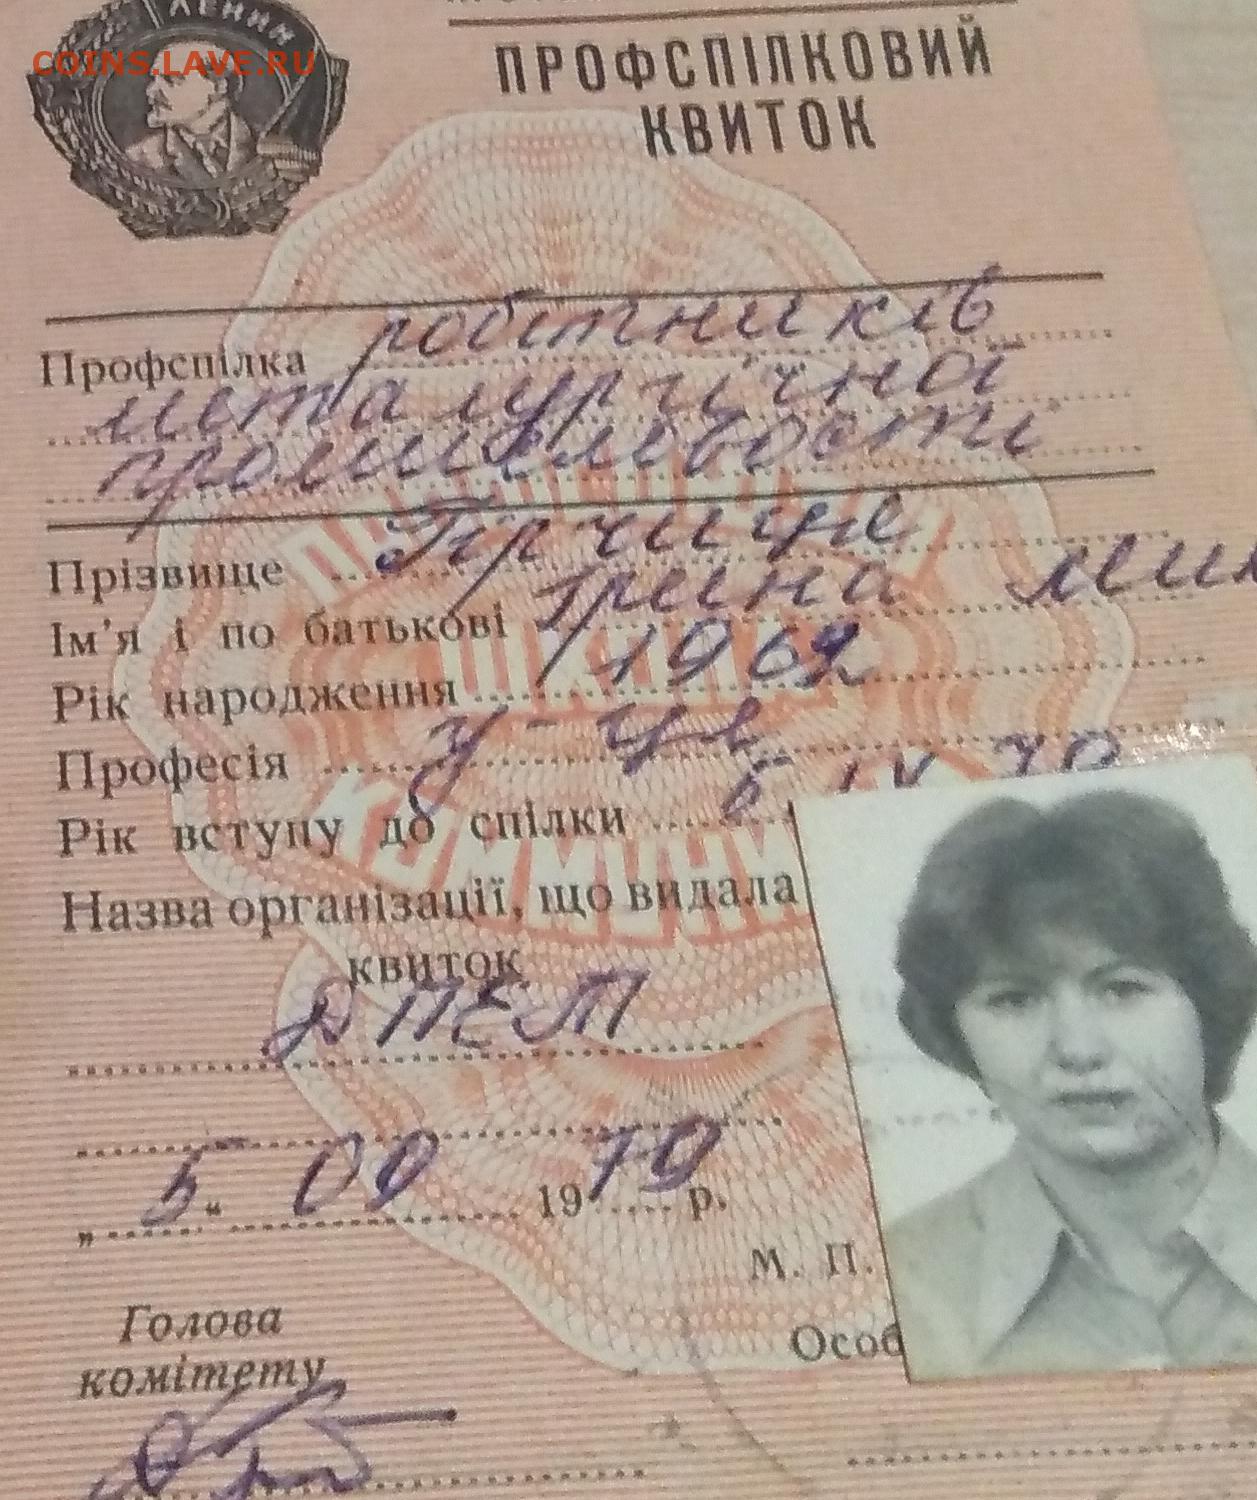 ЛЕНИН
COINS.LAVE.RU
ПРОФСПІЛКОВИЙ
КВИТОК
Профспілка робітників
металургічної
промисловості
ПРОФСОЮЗЫ
ШКОЛА
КОММУНИ
Прізвище
Ім'я і по батькові Ірина
Рік народження 1962
Професія у-ця
Рік вступу до спілки 5 IX 79
Назва організації, що видала
квиток
ДМЕТ
„ 5 “ 09 1979 р.
М. П.
Особ
Голова
комітету